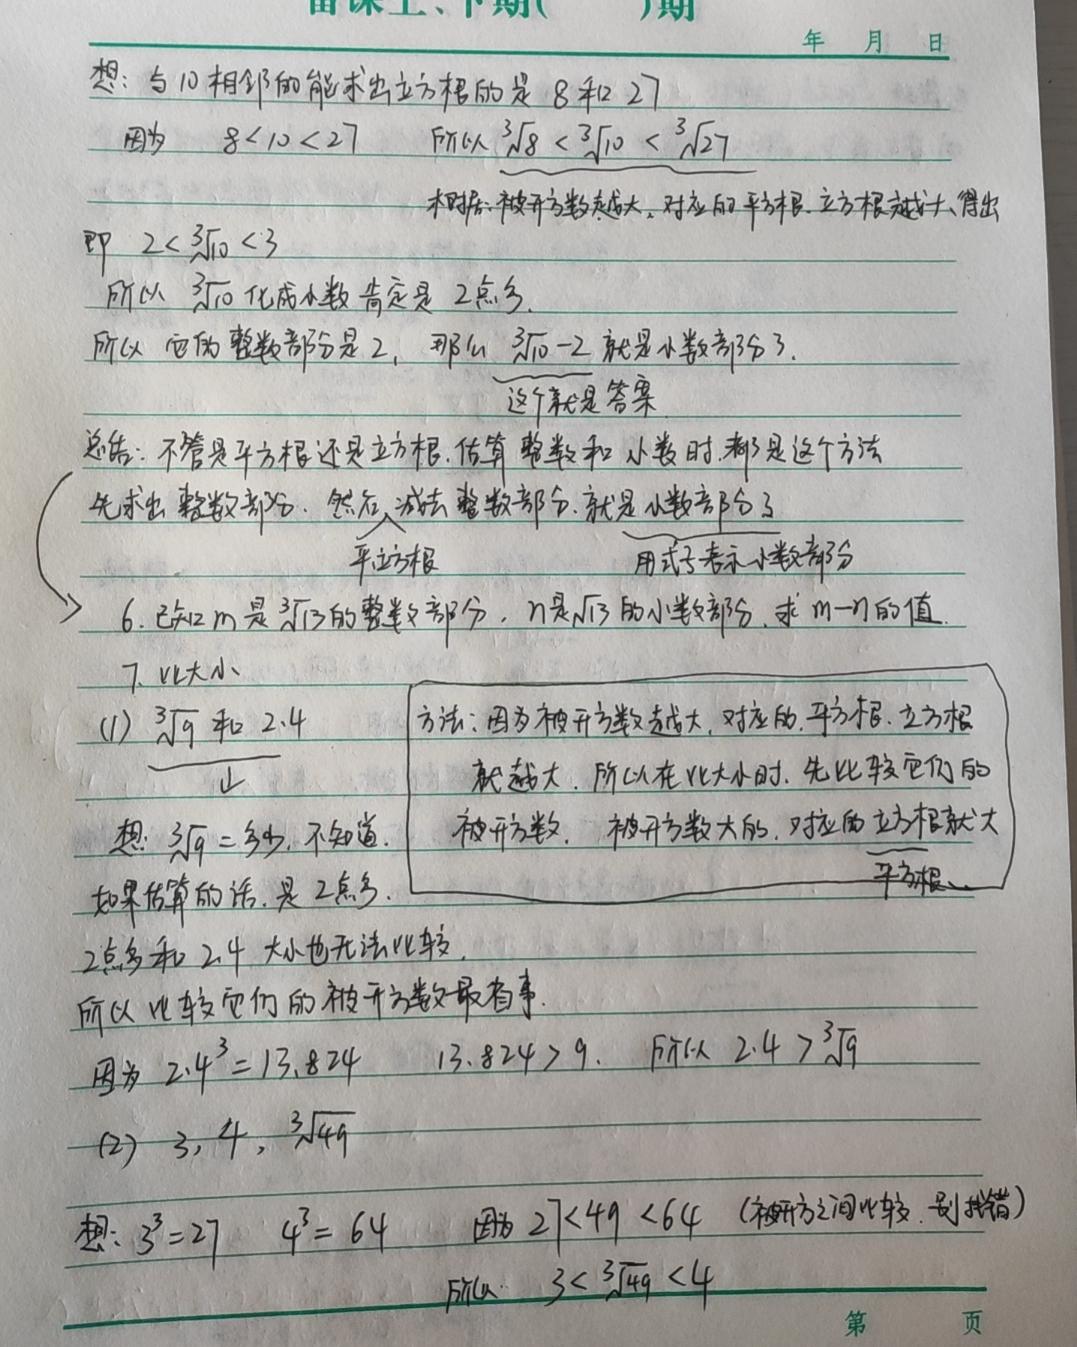 备课上、下期( )期
年 月 日
想: 与10相邻的能求出立方根的是 8和27
因为 8<10<27 所以 ∛8 < ∛10 < ∛27
根据: 被开方数越大, 对应的平方根、立方根越大、得出
即 2<∛10<3
所以 ∛10 化成小数肯定是 2点多.
所以 它的整数部分是2, 那么 ∛10-2 就是小数部分了.
这个就是答案
总结: 不管是平方根还是立方根. 估算整数和小数时. 都是这个方法
先求出整数部分. 然后 减去整数部分. 就是小数部分了
平立方根 用式子表示小数部分
6. 已知m是∛13的整数部分, n是√13的小数部分, 求m-n的值.
7. 比大小
(1) ∛9 和 2.4
方法: 因为被开方数越大, 对应的, 平方根. 立方根
就越大. 所以在比大小时. 先比较它们的
被开方数. 被开方数大的, 对应的立方根就大
平方根、
想: ∛9=多少, 不知道.
如果估算的话. 是2点多.
2点多和2.4 大小也无法比较.
所以比较它们的被开方数最省事.
因为 2.4³=13.824 13.824>9. 所以 2.4>∛9
(2) 3, 4, ∛49
想: 3³=27 4³=64 因为 27<49<64 (被开方之间比较. 别找错)
所以 3<∛49<4
第 页